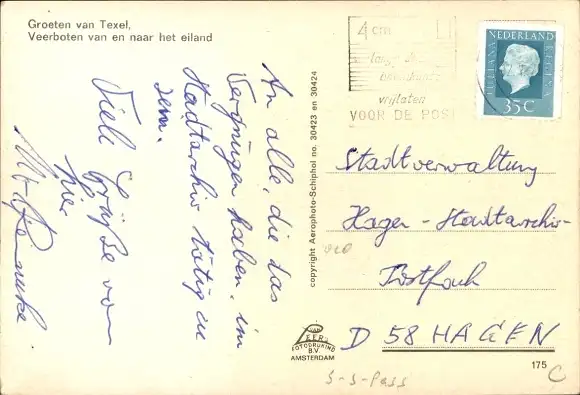 Groeten van Texel,
Veerboten van en naar het eiland
An alle, die das
Vergnügen haben, im
Stadtarchiv tätig zu
sein.
Viele Grüße von
hier
copyright Aerophoto-Schiphol no. 30423 en 30424
4 cm
vrijlaten
VOOR DE POST
NEDERLAND
JULIANA REGINA
35 C
Stadtverwaltung
Hagen - Stadtarchiv-
Postfach
D 58 HAGEN
VAN
LEER'S
FOTODRUKIND
B.V.
AMSTERDAM
175
C
S-S-Pass